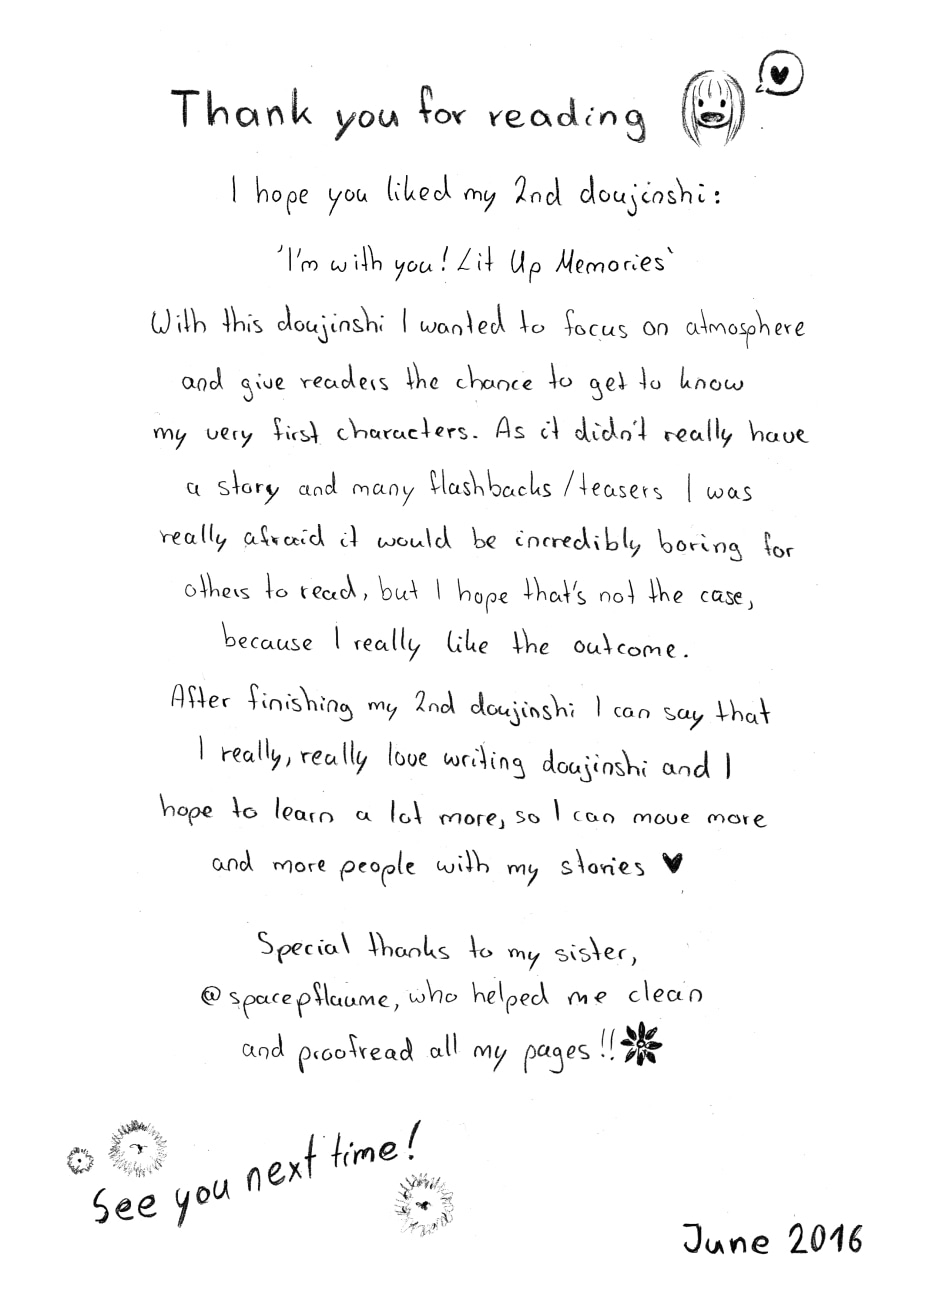 Thank you for reading
I hope you liked my 2nd doujinshi:
'I'm with you! Lit Up Memories`
With this doujinshi I wanted to focus on atmosphere
and give readers the chance to get to know
my very first characters. As it didn't really have
a story and many flashbacks/teasers I was
really afraid it would be incredibly boring for
others to read, but I hope that's not the case,
because I really like the outcome.
After finishing my 2nd doujinshi I can say that
I really, really love writing doujinshi and I
hope to learn a lot more, so I can move more
and more people with my stories ♥
Special thanks to my sister,
@spacepflaume, who helped me clean
and proofread all my pages!!
See you next time!
June 2016